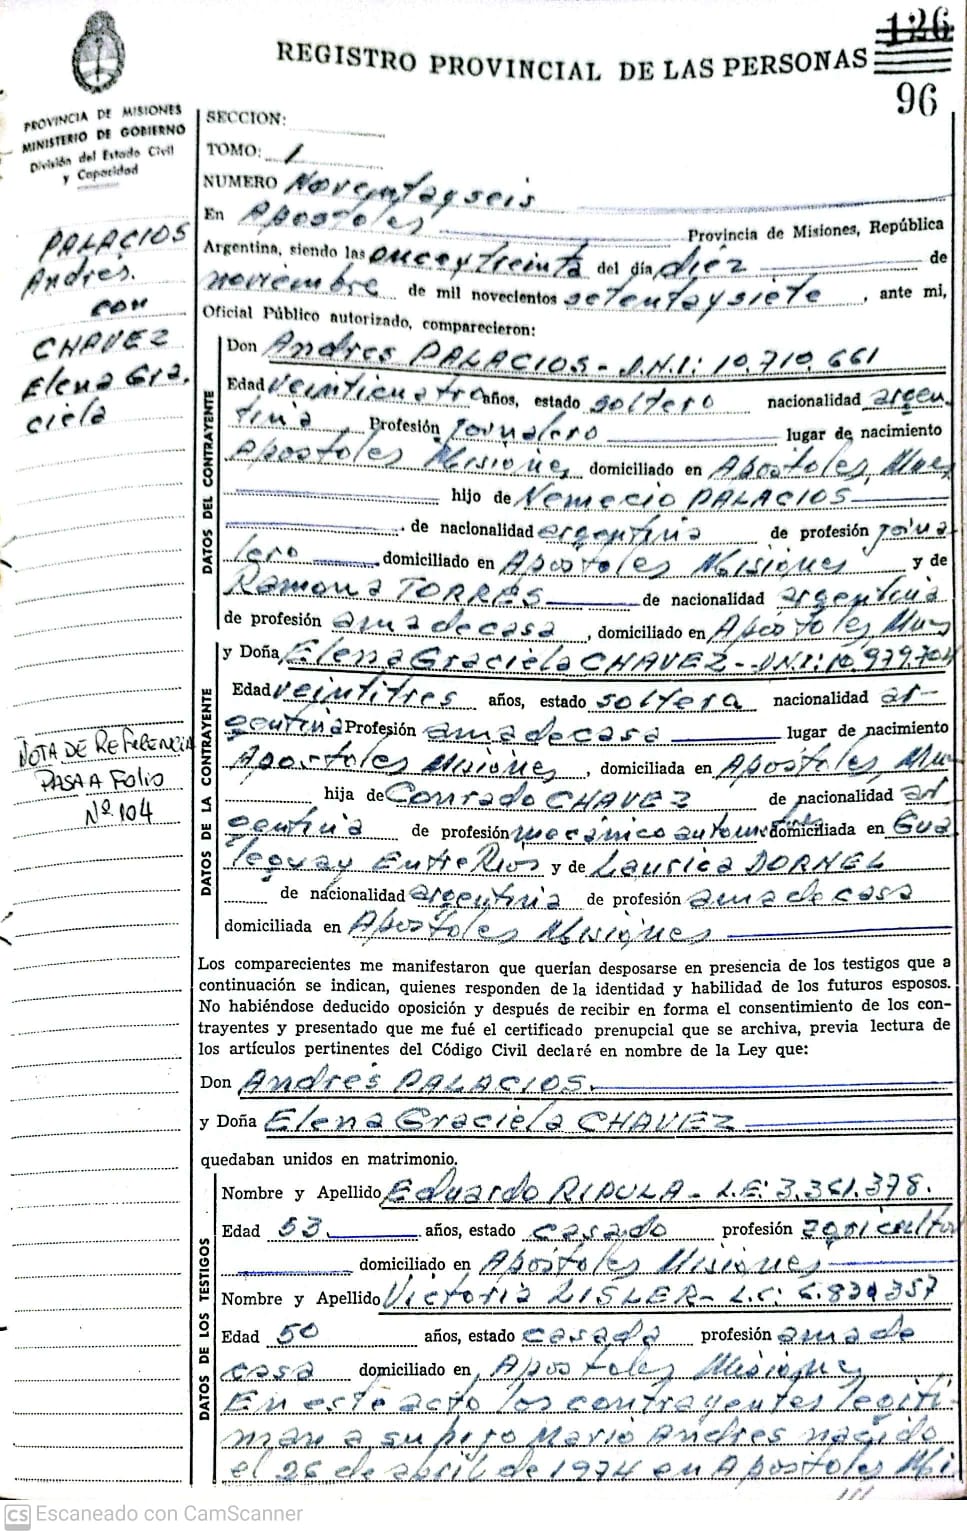 REGISTRO PROVINCIAL DE LAS PERSONAS
126
96
PROVINCIA DE MISIONES
MINISTERIO DE GOBIERNO
División del Estado Civil
y Capacidad
PALACIOS
Andrés.
con
CHAVEZ
Elena Gra.
ciela
NOTA DE REFERENCIA
PASA A FOLIO
Nº 104
SECCION:
TOMO: 1
NUMERO Noventayseis
En Apostoles Provincia de Misiones, República
Argentina, siendo las onceytreinta del día diéz de
noviembre de mil novecientos setentaysiete, ante mi,
Oficial Público autorizado, comparecieron:
DATOS DEL CONTRAYENTE
Don Andres PALACIOS - D.N.I: 10.710.661
Edad veinticuatro años, estado soltero nacionalidad argen
tina Profesión jornalero lugar de nacimiento
Apostoles Misiones domiciliado en Apostoles, Mnes
hijo de Nemecio PALACIOS
de nacionalidad argentina de profesión jorna
lero domiciliado en Apostoles Misiones y de
Ramona TORRES de nacionalidad argentina
de profesión ama de casa, domiciliado en Apostoles, Mnes
DATOS DE LA CONTRAYENTE
y Doña Elena Graciela CHAVEZ - DNI: 10.979.704
Edad veintitres años, estado soltera nacionalidad ar-
gentina Profesión ama de casa lugar de nacimiento
Apostoles Misiones, domiciliada en Apostoles, Mnes
hija de Conrado CHAVEZ de nacionalidad ar
gentina de profesión mecánico domiciliada en Gua
leguay Entre Rios y de Laurica DORNEL
de nacionalidad argentina de profesión ama de casa
domiciliada en Apostoles Misiones
Los comparecientes me manifestaron que querían desposarse en presencia de los testigos que a
continuación se indican, quienes responden de la identidad y habilidad de los futuros esposos.
No habiéndose deducido oposición y después de recibir en forma el consentimiento de los con-
trayentes y presentado que me fué el certificado prenupcial que se archiva, previa lectura de
los artículos pertinentes del Código Civil declaré en nombre de la Ley que:
Don Andrés PALACIOS.
y Doña Elena Graciela CHAVEZ
quedaban unidos en matrimonio.
DATOS DE LOS TESTIGOS
Nombre y Apellido Eduardo RIDULA - L.E: 3.361.378.
Edad 53 años, estado casado profesión agricultor
domiciliado en Apóstoles Misiones
Nombre y Apellido Victoria L.C: 6.839357
Edad 50 años, estado casada profesión ama de
casa domiciliado en Apostoles Misiones
En este acto los contrayentes legiti
man a su hijo Mario Andres nacido
el 26 de abril de 1974 en Apostoles Mi
///
CS Escaneado con CamScanner